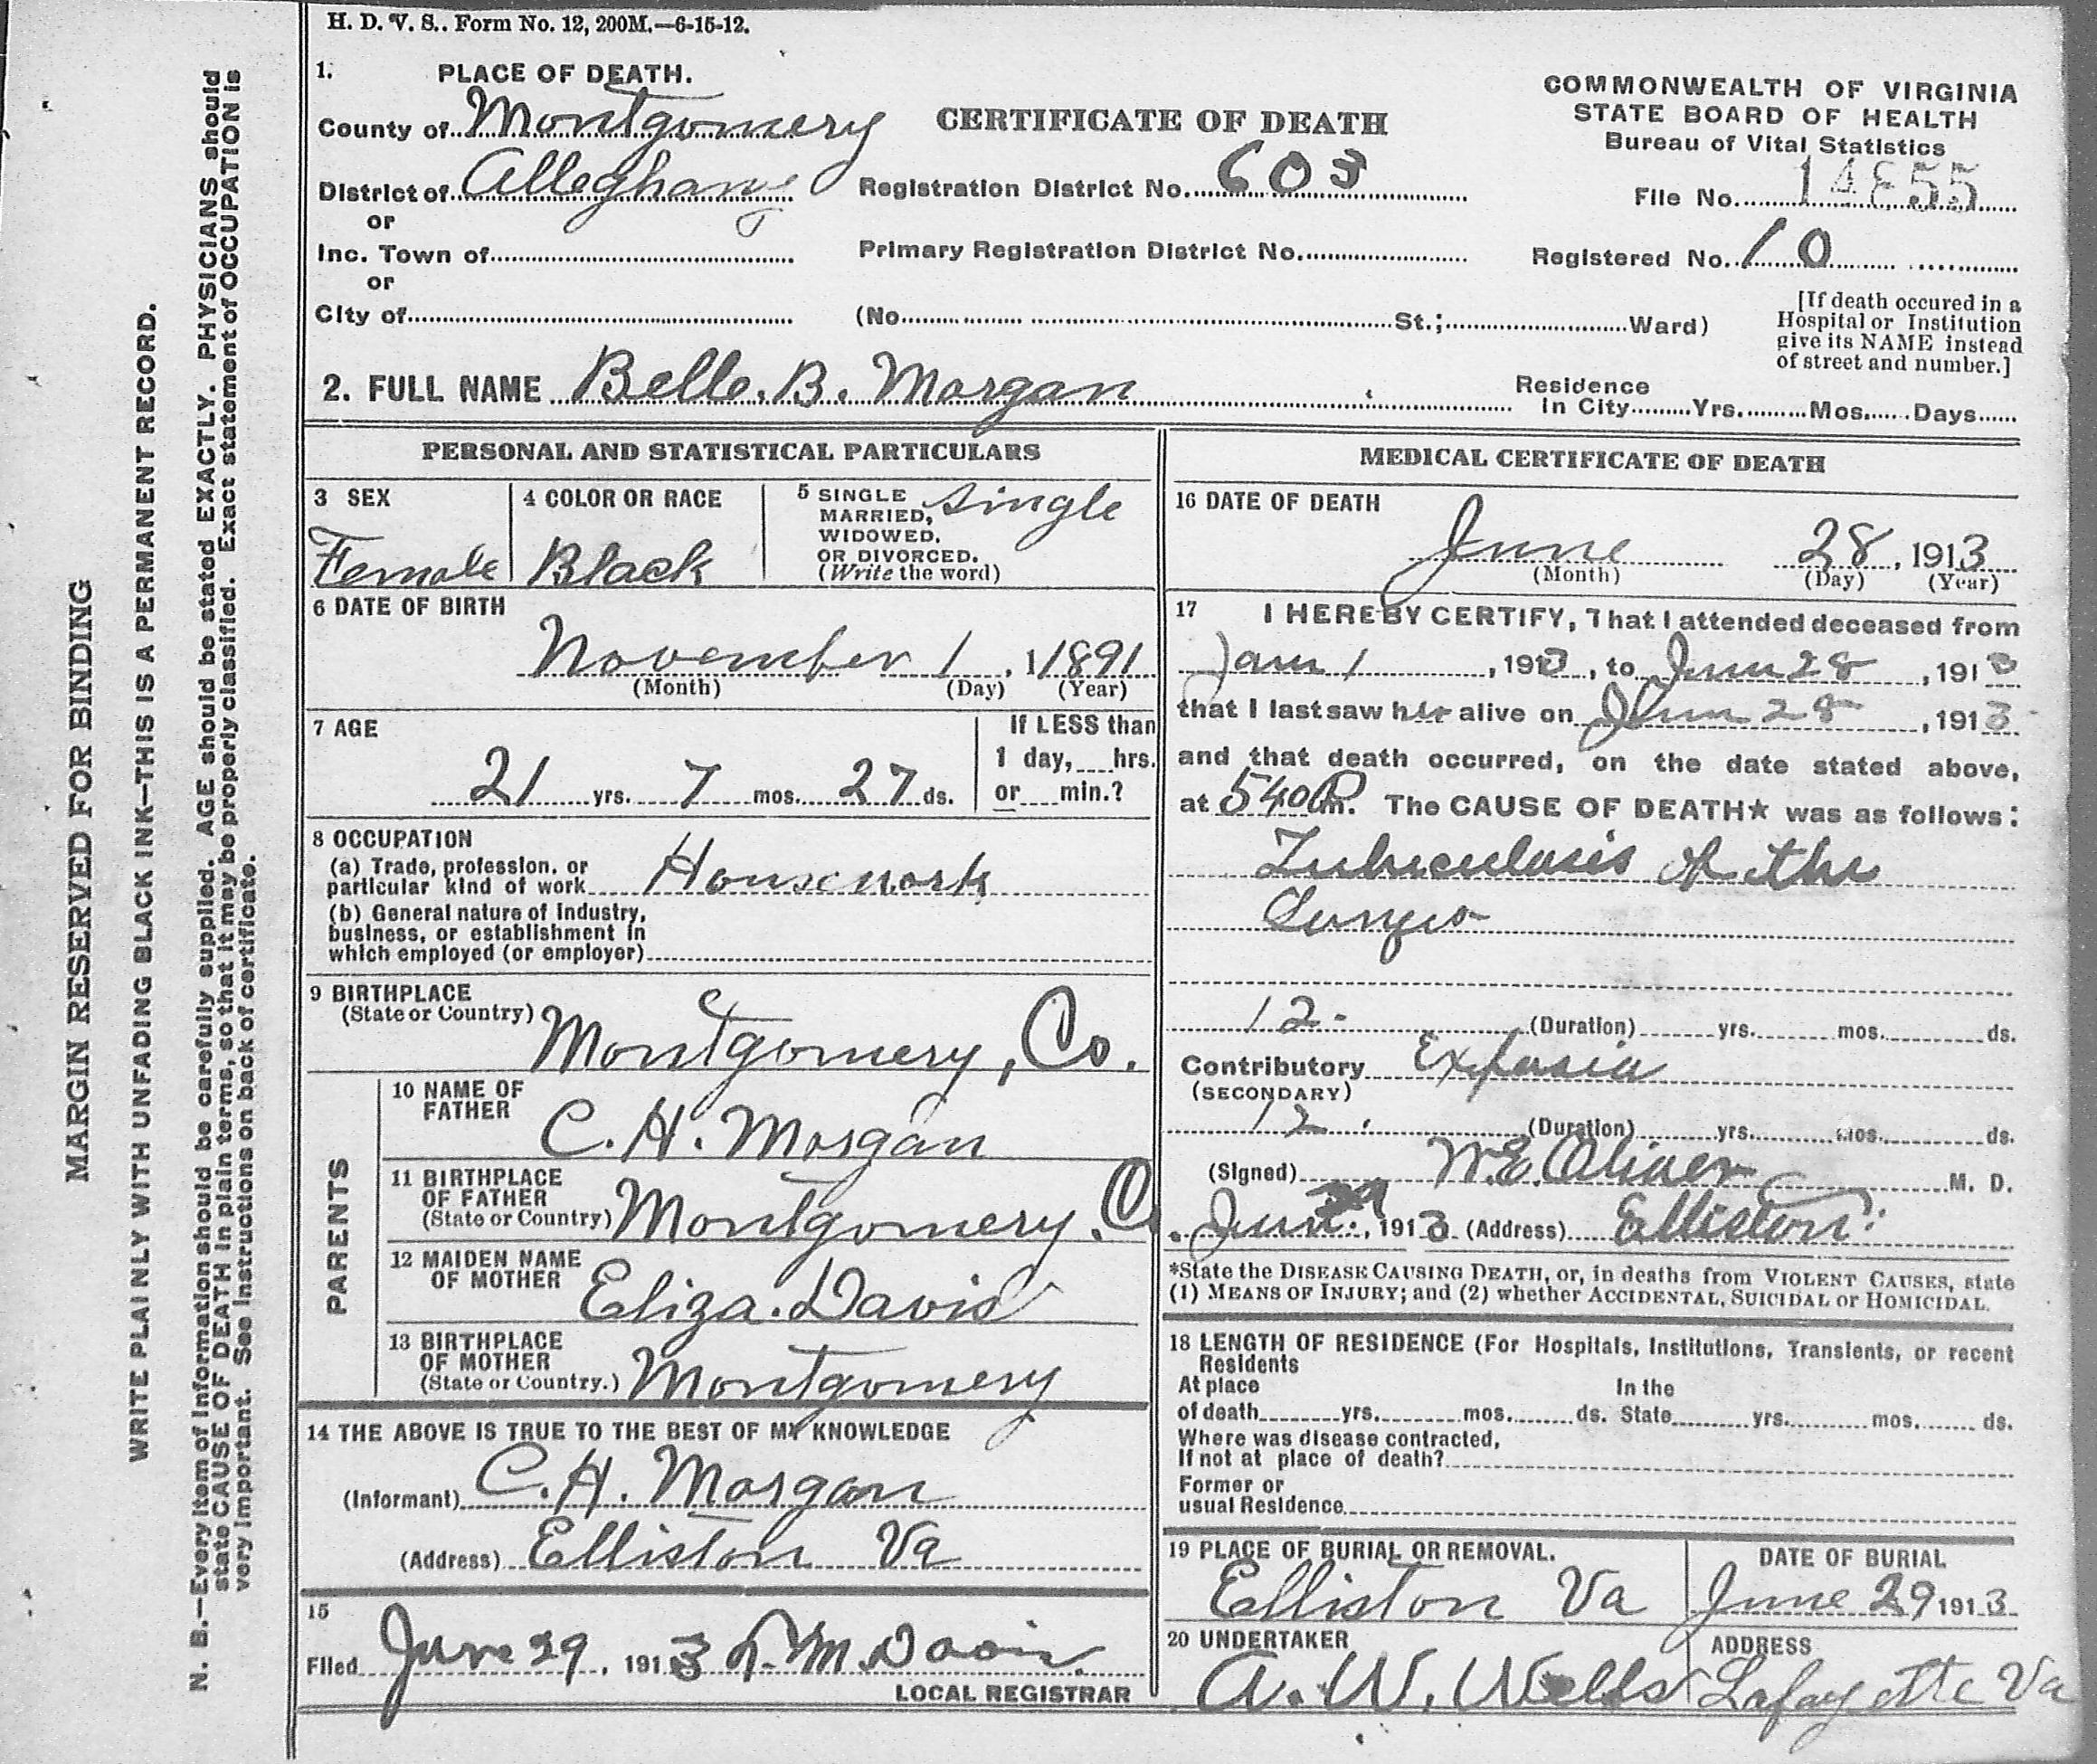 H. D. V. S.. Form No. 12, 200M.—6-15-12.
1. PLACE OF DEATH.
County of Montgomery
District of Alleghany
or
Inc. Town of
or
City of
CERTIFICATE OF DEATH
Registration District No. 603
Primary Registration District No.
(No. St.; Ward)
COMMONWEALTH OF VIRGINIA
STATE BOARD OF HEALTH
Bureau of Vital Statistics
File No. 14855
Registered No. 10
[If death occured in a
Hospital or Institution
give its NAME instead
of street and number.]
2. FULL NAME Belle. B. Morgan
Residence
In City Yrs. Mos. Days
PERSONAL AND STATISTICAL PARTICULARS
3 SEX
Female
4 COLOR OR RACE
Black
5 SINGLE
MARRIED,
WIDOWED,
OR DIVORCED.
(Write the word)
Single
6 DATE OF BIRTH
November 1, 11891
(Month) (Day) (Year)
7 AGE
21 yrs. 7 mos. 27 ds.
If LESS than
1 day, hrs.
or min.?
8 OCCUPATION
(a) Trade, profession, or
particular kind of work Housework
(b) General nature of industry,
business, or establishment in
which employed (or employer)
9 BIRTHPLACE
(State or Country) Montgomery, Co.
PARENTS
10 NAME OF
FATHER C. H. Morgan
11 BIRTHPLACE
OF FATHER
(State or Country) Montgomery. Co.
12 MAIDEN NAME
OF MOTHER Eliza. Davis
13 BIRTHPLACE
OF MOTHER
(State or Country.) Montgomery
14 THE ABOVE IS TRUE TO THE BEST OF MY KNOWLEDGE
(Informant) C. H. Morgan
(Address) Elliston Va
15
Filed June 29, 1913 M. Davis
LOCAL REGISTRAR
MEDICAL CERTIFICATE OF DEATH
16 DATE OF DEATH
June 28, 1913
(Month) (Day) (Year)
17 I HEREBY CERTIFY, That I attended deceased from
Jan 1, 1913, to Jun 28, 1913
that I last saw her alive on Jun 28, 1913
and that death occurred, on the date stated above,
at 540 P m. The CAUSE OF DEATH★ was as follows:
Tuberculosis of the
Lungs
12. (Duration) yrs. mos. ds.
Contributory
(SECONDARY)
12. (Duration) yrs. mos. ds.
(Signed) W. E. Oliver M. D.
June 29, 1913 (Address) Elliston
*State the DISEASE CAUSING DEATH, or, in deaths from VIOLENT CAUSES, state
(1) MEANS OF INJURY; and (2) whether ACCIDENTAL, SUICIDAL or HOMICIDAL.
18 LENGTH OF RESIDENCE (For Hospitals, Institutions, Transients, or recent
Residents
At place In the
of death yrs. mos. ds. State yrs. mos. ds.
Where was disease contracted,
If not at place of death?
Former or
usual Residence
19 PLACE OF BURIAL OR REMOVAL.
Elliston Va
DATE OF BURIAL
June 29 1913
20 UNDERTAKER
A. W. Wells
ADDRESS
Lafayette Va
MARGIN RESERVED FOR BINDING
WRITE PLAINLY WITH UNFADING BLACK INK—THIS IS A PERMANENT RECORD.
N. B.—Every item of information should be carefully supplied. AGE should be stated EXACTLY. PHYSICIANS should
state CAUSE OF DEATH in plain terms, so that it may be properly classified. Exact statement of OCCUPATION is
very important. See instructions on back of certificate.